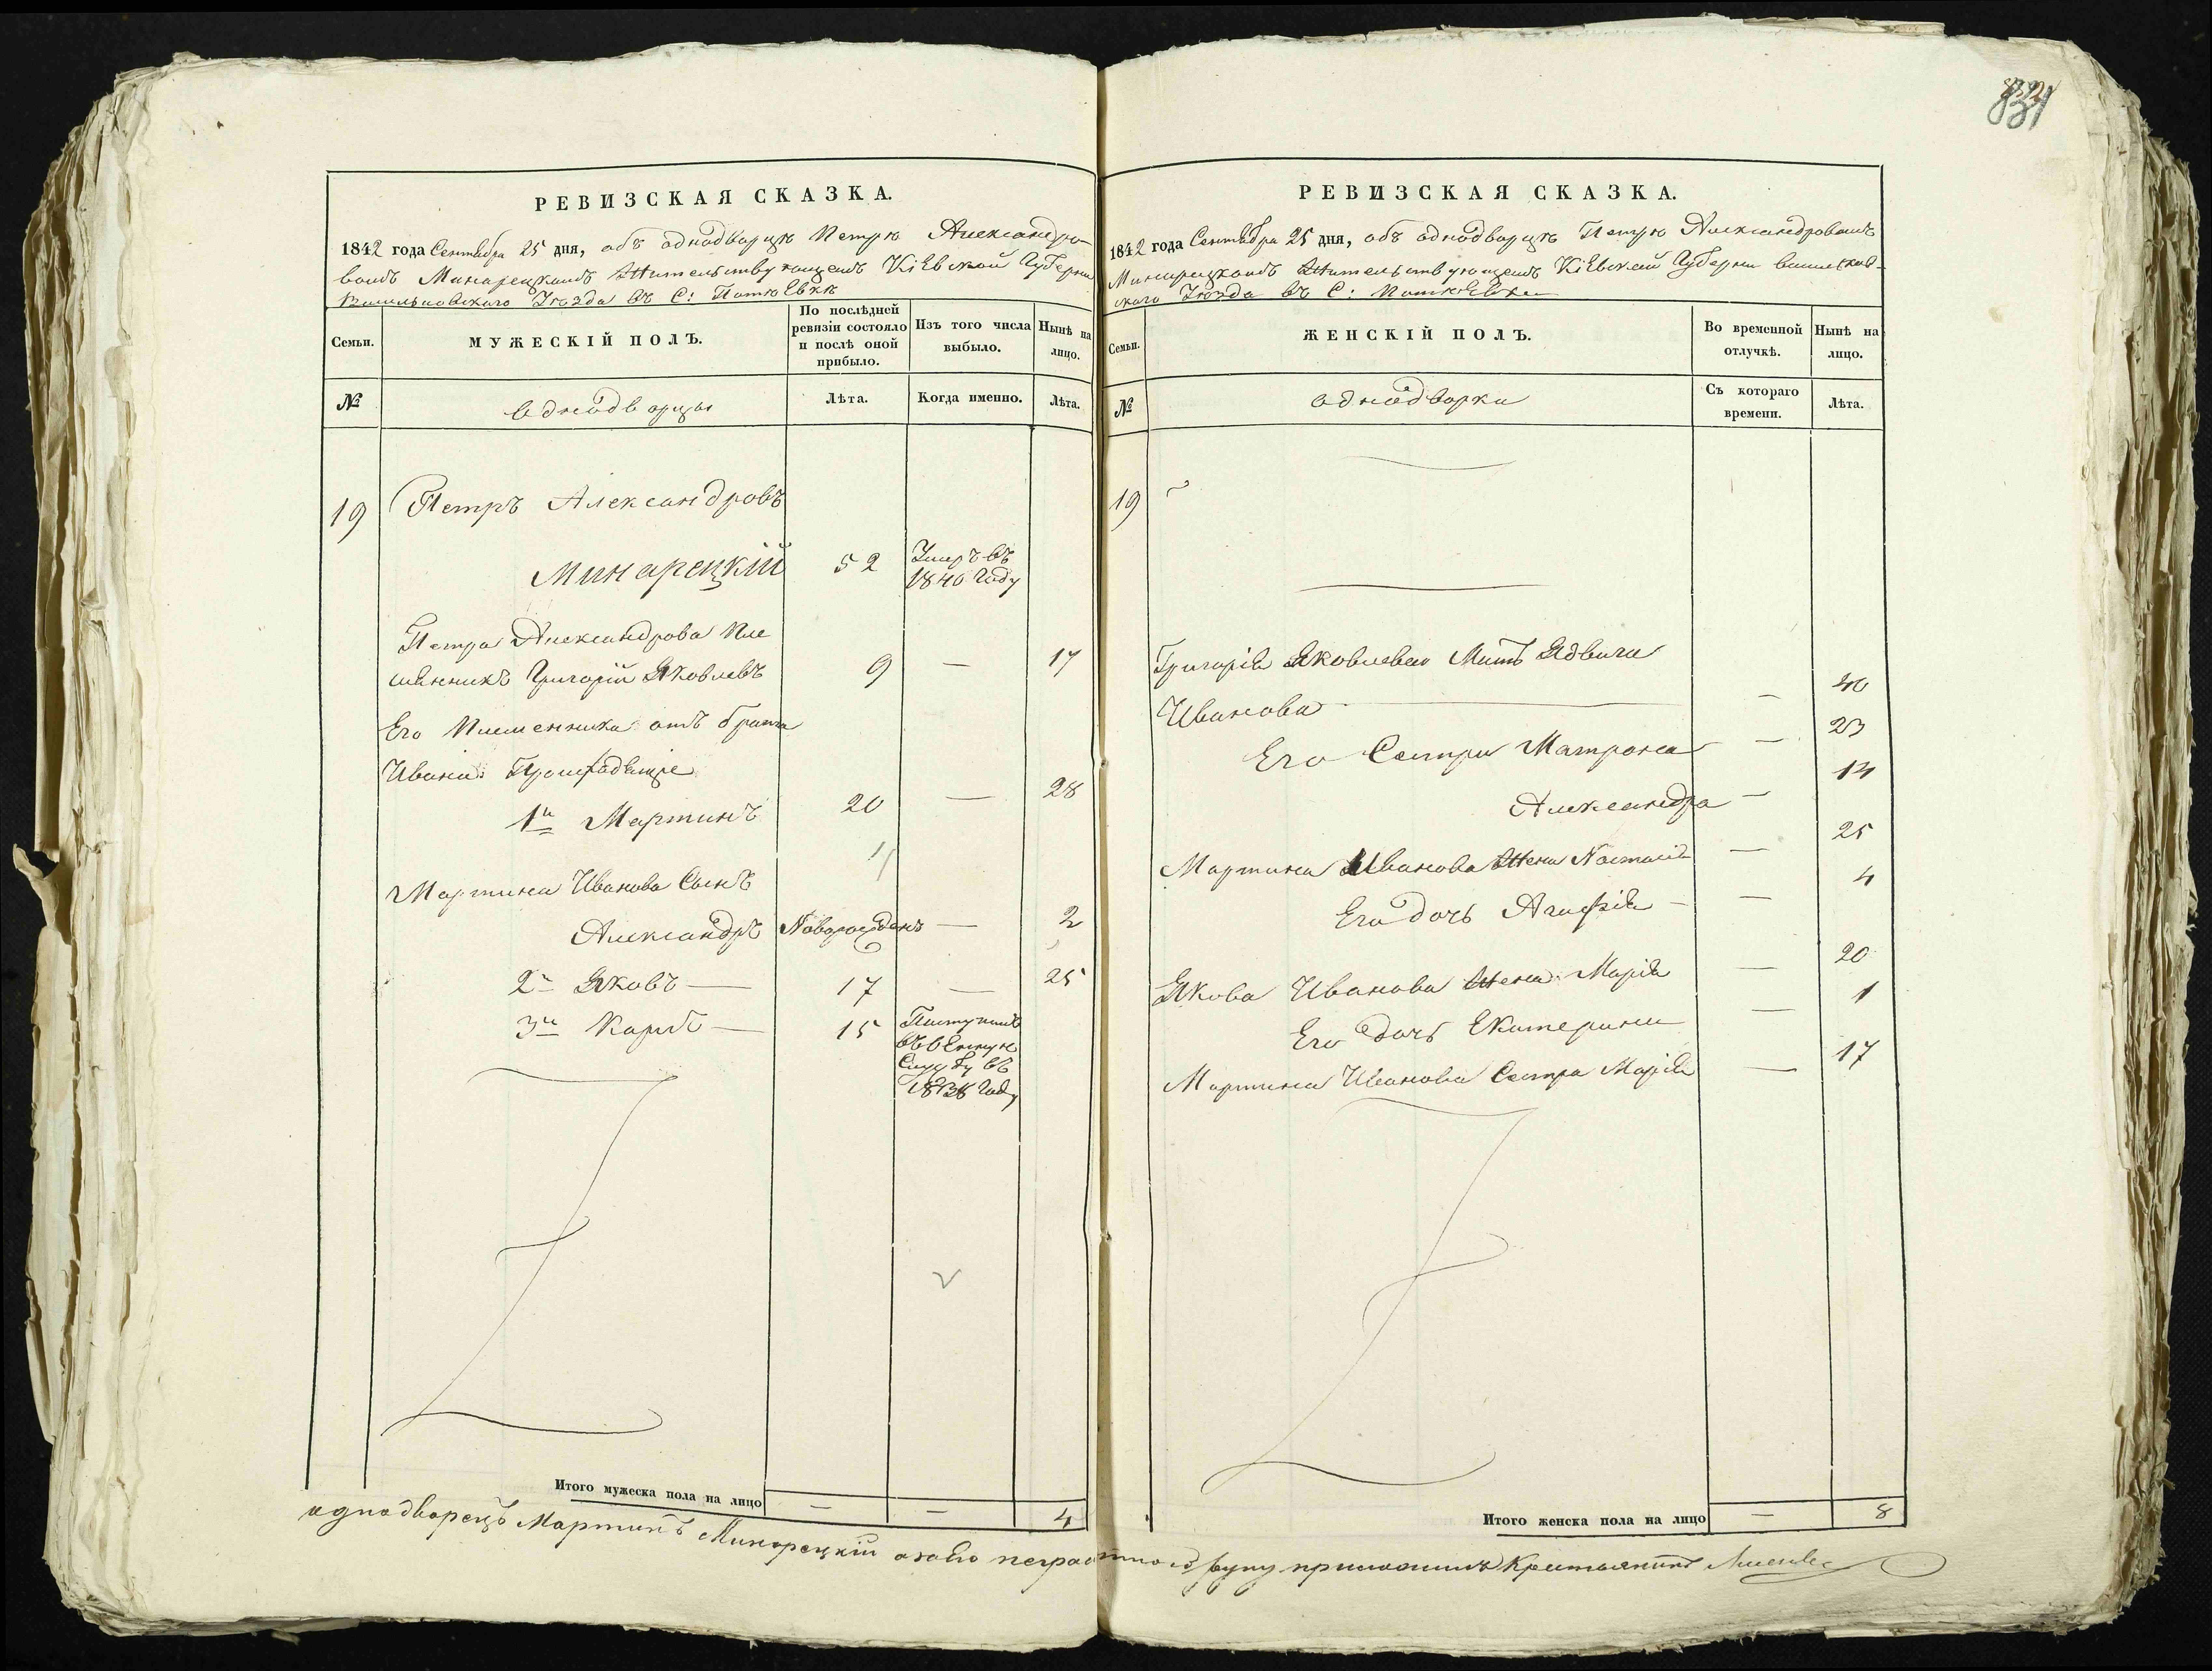 РЕВИЗСКАЯ СКАЗКА.
1842 года Сентября 25 дня, объ однодворцѣ Петрѣ Александро-
вомъ Минарецкомъ Жительствующемъ Кіевской Губерніи
Васильковскаго Уѣзда въ С: Потіевкѣ
Семьи.
МУЖЕСКІЙ ПОЛЪ.
По послѣдней ревизіи состояло и послѣ оной прибыло.
Изъ того числа выбыло.
Нынѣ на лицо.
№
однодворцы
Лѣта.
Когда именно.
Лѣта.
19 Петръ Александровъ
Минарецкій 52 Умеръ въ
1840 Году
Петра Александрова Пле
мянникъ Григорій Яковлевъ 9 — 17
Его Племенника отъ брата
Ивана: Произшедшіе
1й Мартинъ 20 — 28
Мартина Иванова Сынъ
Александръ Новорожденъ — 2
2й Яковъ — 17 — 25
3й Карлъ — 15 Поступилъ
въ военную
Службу въ
Году
Итого мужеска пола на лицо — — 4
831
РЕВИЗСКАЯ СКАЗКА.
1842 года Сентября 25 дня, объ однодворцѣ Петрѣ Александровомъ
Минарецкомъ Жительствующемъ Кіевской Губерніи Васильков-
скаго Уѣзда въ С:
Семьи.
ЖЕНСКІЙ ПОЛЪ.
Во временной отлучкѣ.
Нынѣ на лицо.
№
однодворки
Съ котораго времени.
Лѣта.
19
Григорія Яковлева Мать Ядвига
Иванова — 40
Его Сестри Матрона — 23
Александра — 14
Мартина Иванова Жена Настасія — 25
Его дочь Агафія — 4
Якова Иванова Жена Марія — 20
Его дочь Екатерина — 1
Мартина Иванова Сестра Марія — 17
Итого женска пола на лицо — 8
однодворецъ Мартинъ Минорецкій а за Его неграмотного руку приложилъ Крестьянинъ